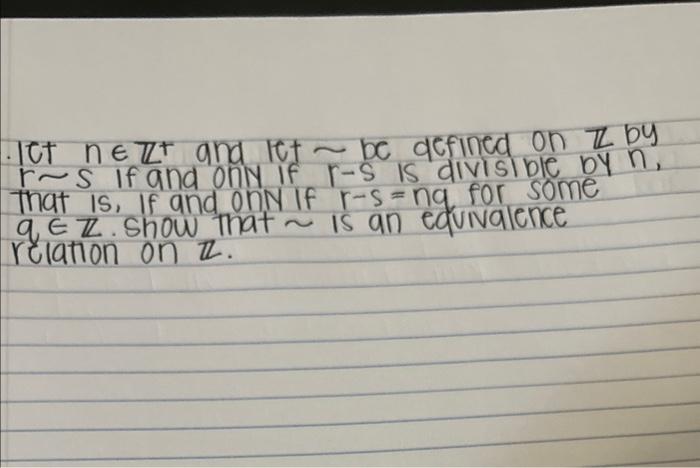 . let n ∈ ℤ⁺ and let ~ be defined on ℤ by
r~s if and only if r-s is divisible by n,
that is, if and only if r-s=nq for some
q ∈ ℤ. show that ~ is an equivalence
relation on ℤ.